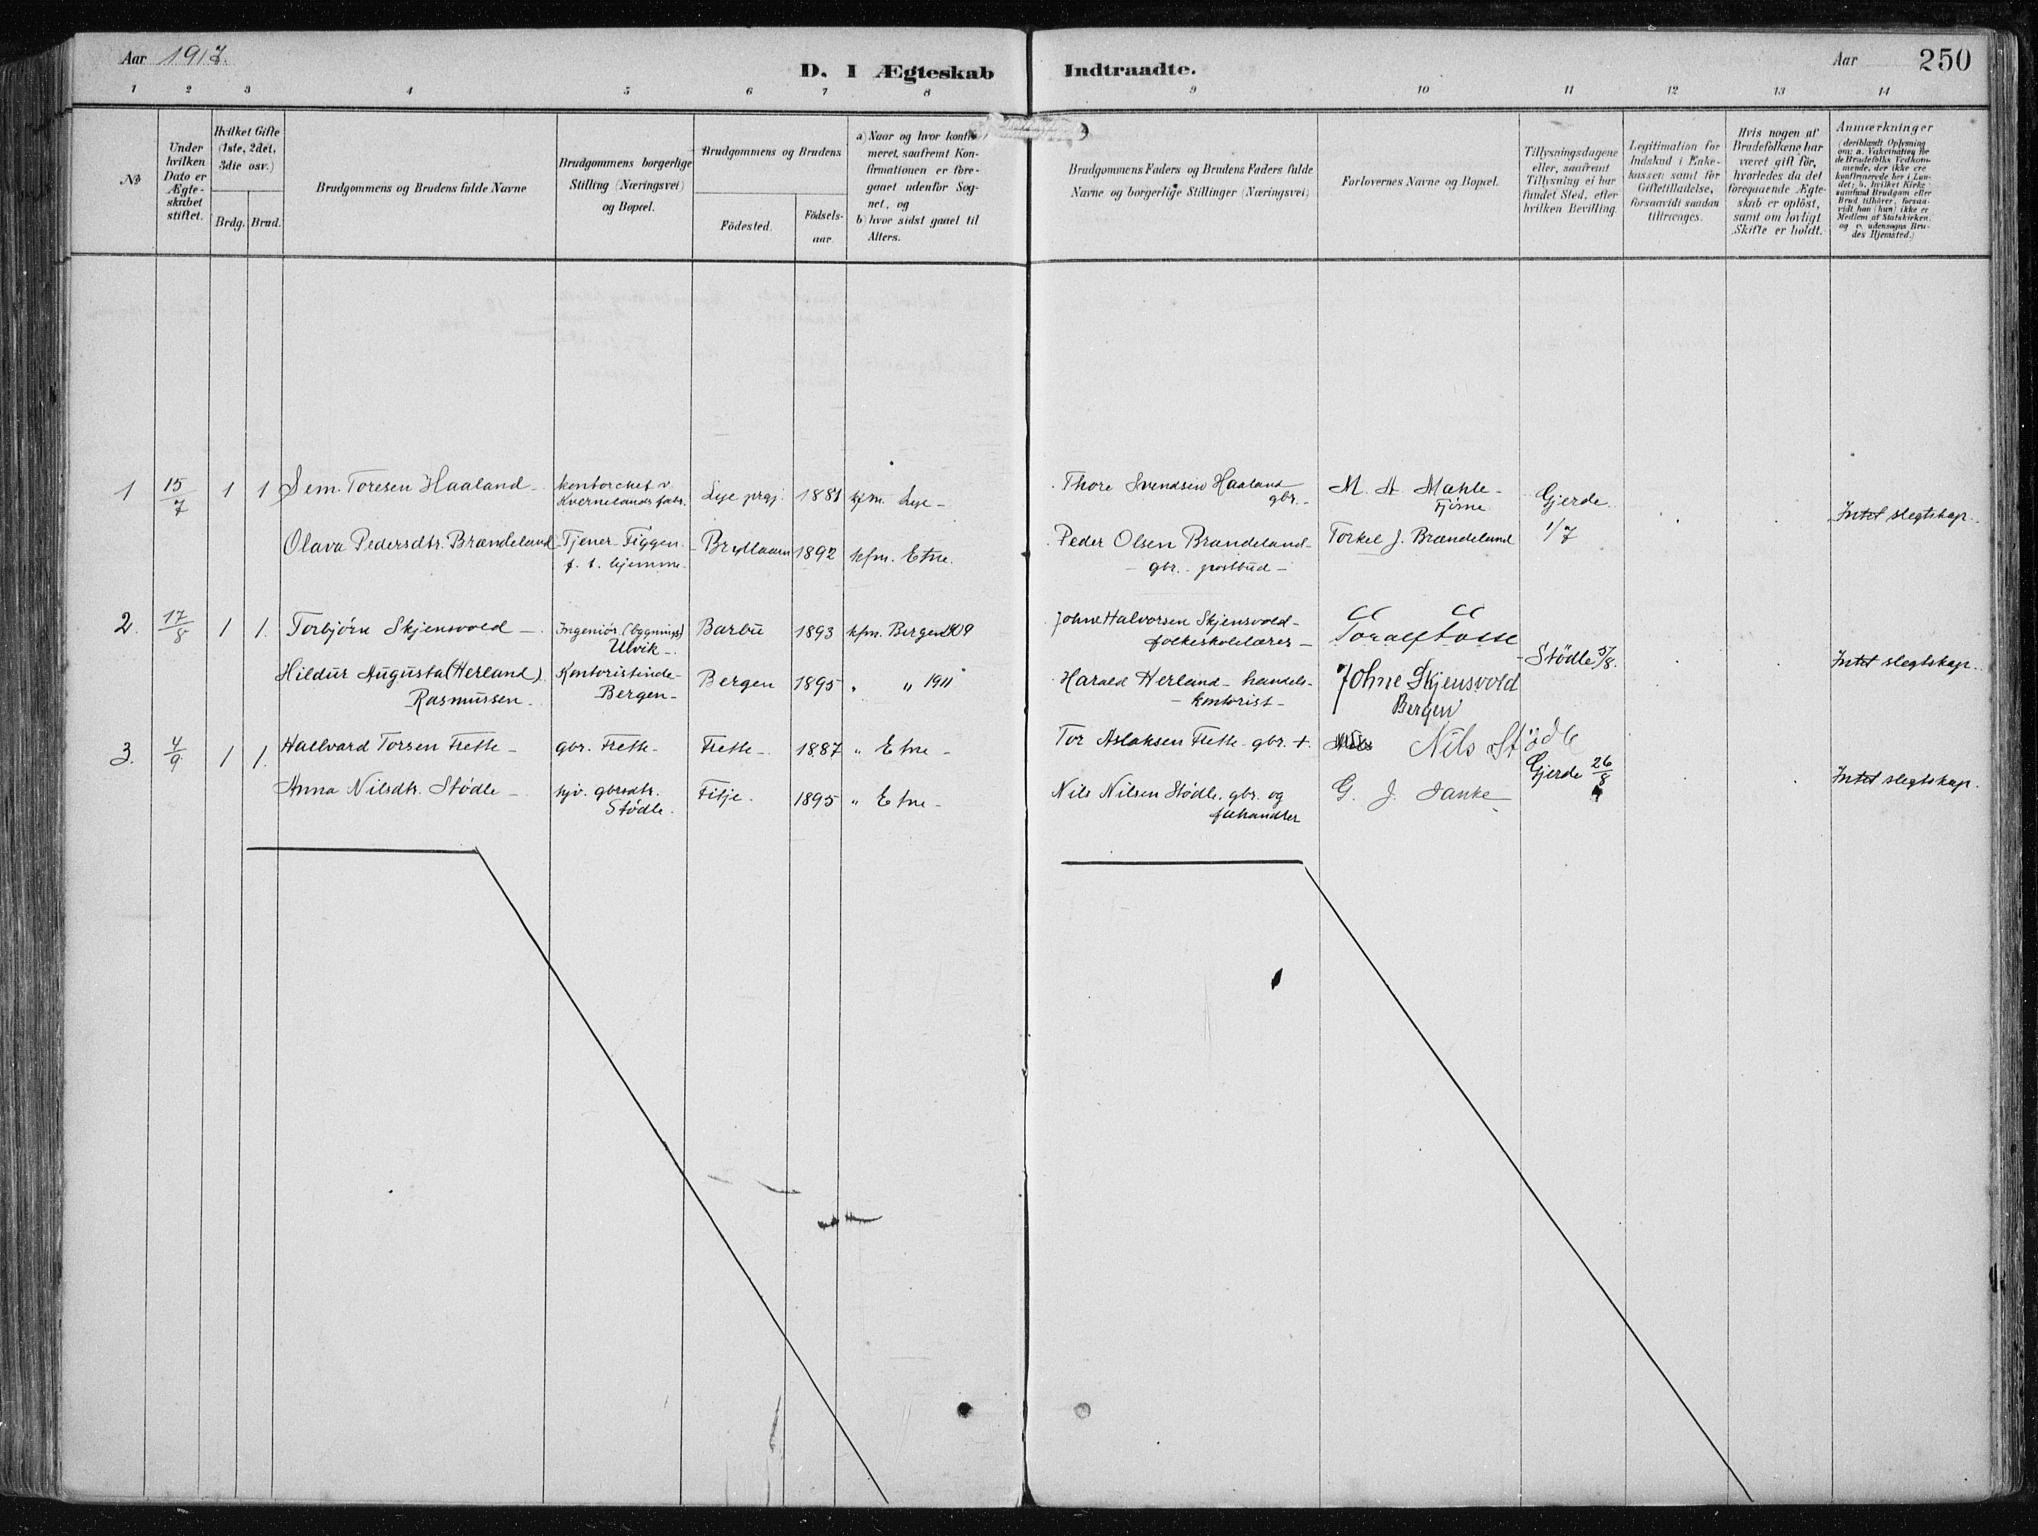 Aar 1917.
D. I Ægteskab Indtraadte.
Aar 250
1 2 3 4 5 6 7 8 9 10 11 12 13 14
No
Under hvilken Dato er Ægteskabet stiftet.
Hvilket Gifte (1ste, 2det, 3die osv.)
Brdg. Brud.
Brudgommens og Brudens fulde Navne
Brudgommens borgerlige Stilling (Næringsvei) og Bopæl.
Brudgommens og Brudens
Födested.
Födselsaar.
a) Naar og hvor konfirmeret, saafremt Konfirmationen er foregaaet udenfor Sognet, og
b) hvor sidst gaaet til Alters.
Brudgommens Faders og Brudens Faders fulde Navne og borgerlige Stillinger (Næringsvei)
Forlovernes Navne og Bopæl.
Tillysningsdagene eller, saafremt Tillysning ei har fundet Sted, efter hvilken Bevilling.
Legitimation for Indskud i Enkekassen samt for Giftetilladelse, forsaavidt saadan tiltrænges.
Hvis nogen af Brudefolkene har været gift för, hvorledes da det foregaaende Ægteskab er oplöst, samt om lovligt Skifte er holdt.
Anmærkninger (deriblandt Oplysning om: a. Vakcination for de Brudefolks Vedkommende, der ikke ere konfirmerede her i Landet; b. hvilket Kirkesamfund Brudgom eller Brud tilhörer, forsaavidt han (hun) ikke er Medlem af Statskirken, og c. udensogns Brudes Hjemsted.)
1 15/7 1 1 Sem Toresen Haaland kontorchef v. Kvernelands fabr. Lye prgj. 1881 kfm. Lye
Thore Svendsen Haaland gbr. M. A. Mæhle Fjøsne Gjerde 1/7 Intet slegtskap.
Olava Pedersdtr. Brændeland Tjener f. t. hjemme 1892 kfm. Etne.
Peder Olsen Brændeland gbr. postbud Torkel J. Brændeland
2. 17/8 1 1. Torbjørn Skjensvold Ingeniør (bygnings) Ulvik Barbu 1893 kfm. Bergen 1909
Johne Halvorsen Skjensvold folkeskolelærer Stødle 5/8. Intet slegtskap.
Hildur Augusta (Herland) Rasmussen Kontoristinde Bergen Bergen 1895 " " 1911
Harald Herland handelskontorist Johne Skjensvold Bergen
3. 4/9 1 1. Hallvard Torsen Frette gbr. Frette Frette 1887 " Etne
Tor Aslaksen Frette gbr. +. Nils Stødle Gjerde 26/8 Intet slegtskap.
Anna Nilsdtr. Stødle hjv. gbrsdtr. Stødle. Fitje. 1895 " Etne
Nils Nilsen Stødle, gbr. og fehandler G. J. Sanke